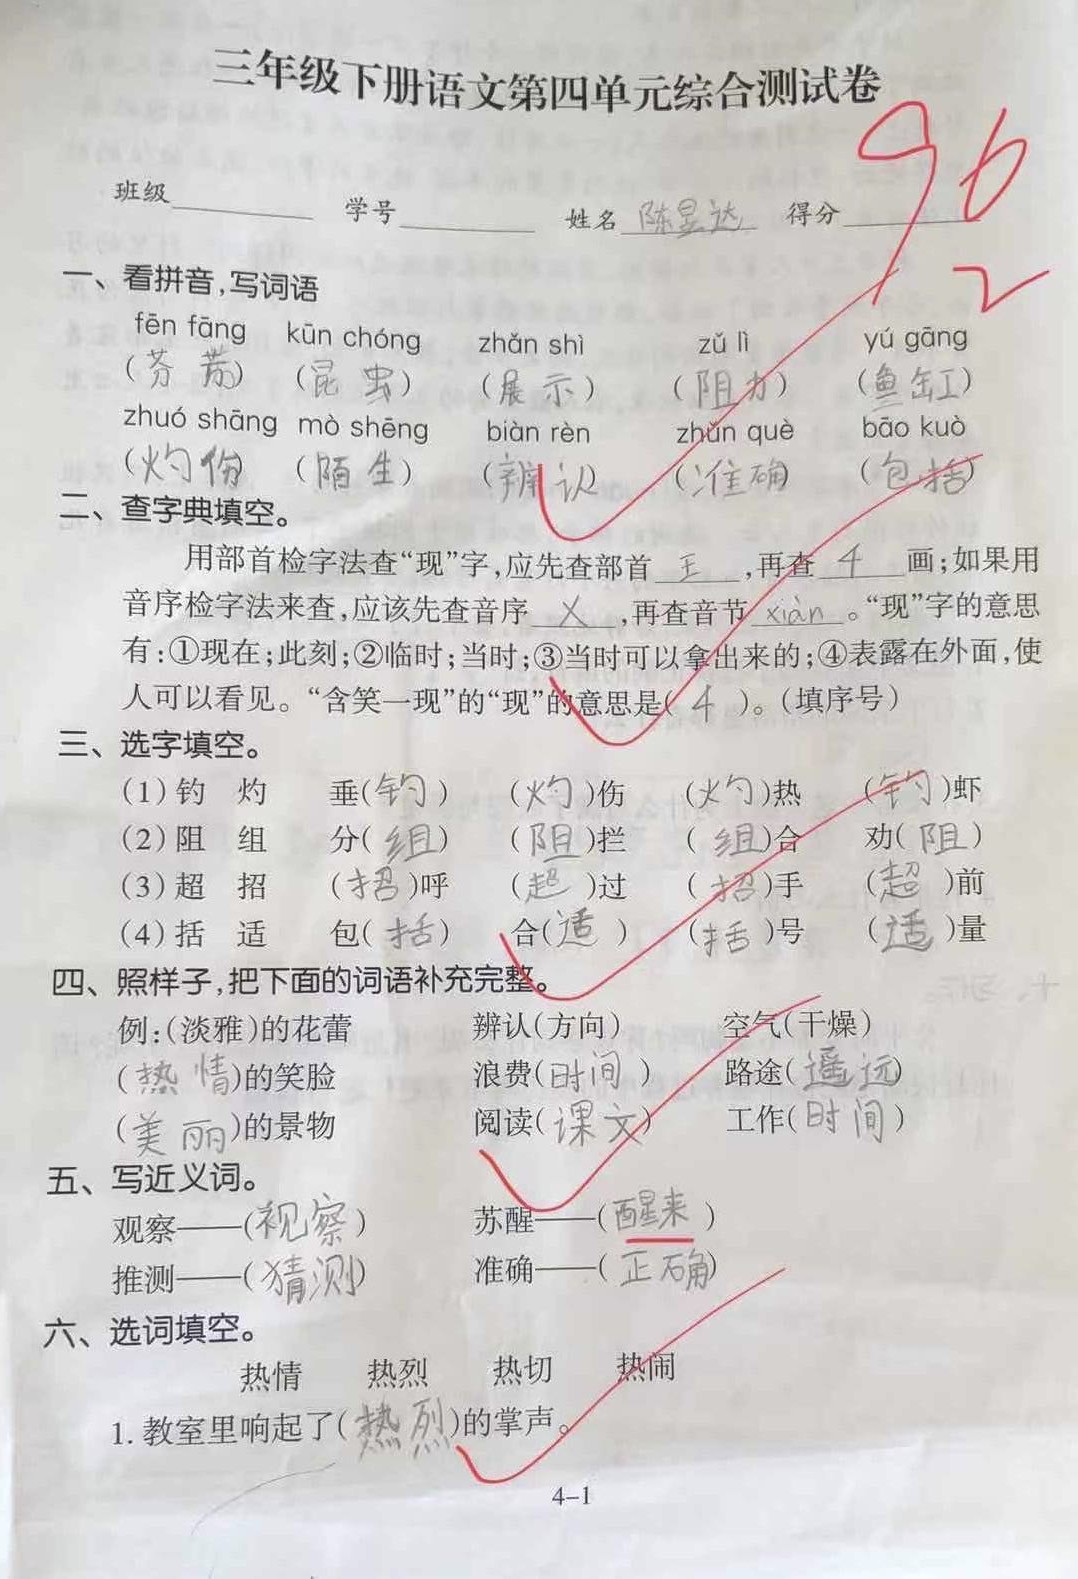 三年级下册语文第四单元综合测试卷
96
2
班级______ 学号______ 姓名 陈昱达 得分______
一、看拼音,写词语
fēn fāng kūn chóng zhǎn shì zǔ lì yú gāng
(芬芳) (昆虫) (展示) (阻力) (鱼缸)
zhuó shāng mò shēng biàn rèn zhǔn què bāo kuò
(灼伤) (陌生) (辨认) (准确) (包括)
二、查字典填空。
用部首检字法查“现”字,应先查部首 王 ,再查 4 画;如果用
音序检字法来查,应该先查音序 X ,再查音节 xiàn 。“现”字的意思
有:①现在;此刻;②临时;当时;③当时可以拿出来的;④表露在外面,使
人可以看见。“含笑一现”的“现”的意思是( 4 )。(填序号)
三、选字填空。
(1)钓 灼 垂(钓) (灼)伤 (灼)热 (钓)虾
(2)阻 组 分(组) (阻)拦 (组)合 劝(阻)
(3)超 招 (招)呼 (超)过 (招)手 (超)前
(4)括 适 包(括) 合(适) (括)号 (适)量
四、照样子,把下面的词语补充完整。
例:(淡雅)的花蕾 辨认(方向) 空气(干燥)
(热情)的笑脸 浪费(时间) 路途(遥远)
(美丽)的景物 阅读(课文) 工作(时间)
五、写近义词。
观察——(视察) 苏醒——(醒来)
推测——(猜测) 准确——(正确)
六、选词填空。
热情 热烈 热切 热闹
1. 教室里响起了(热烈)的掌声。
4-1